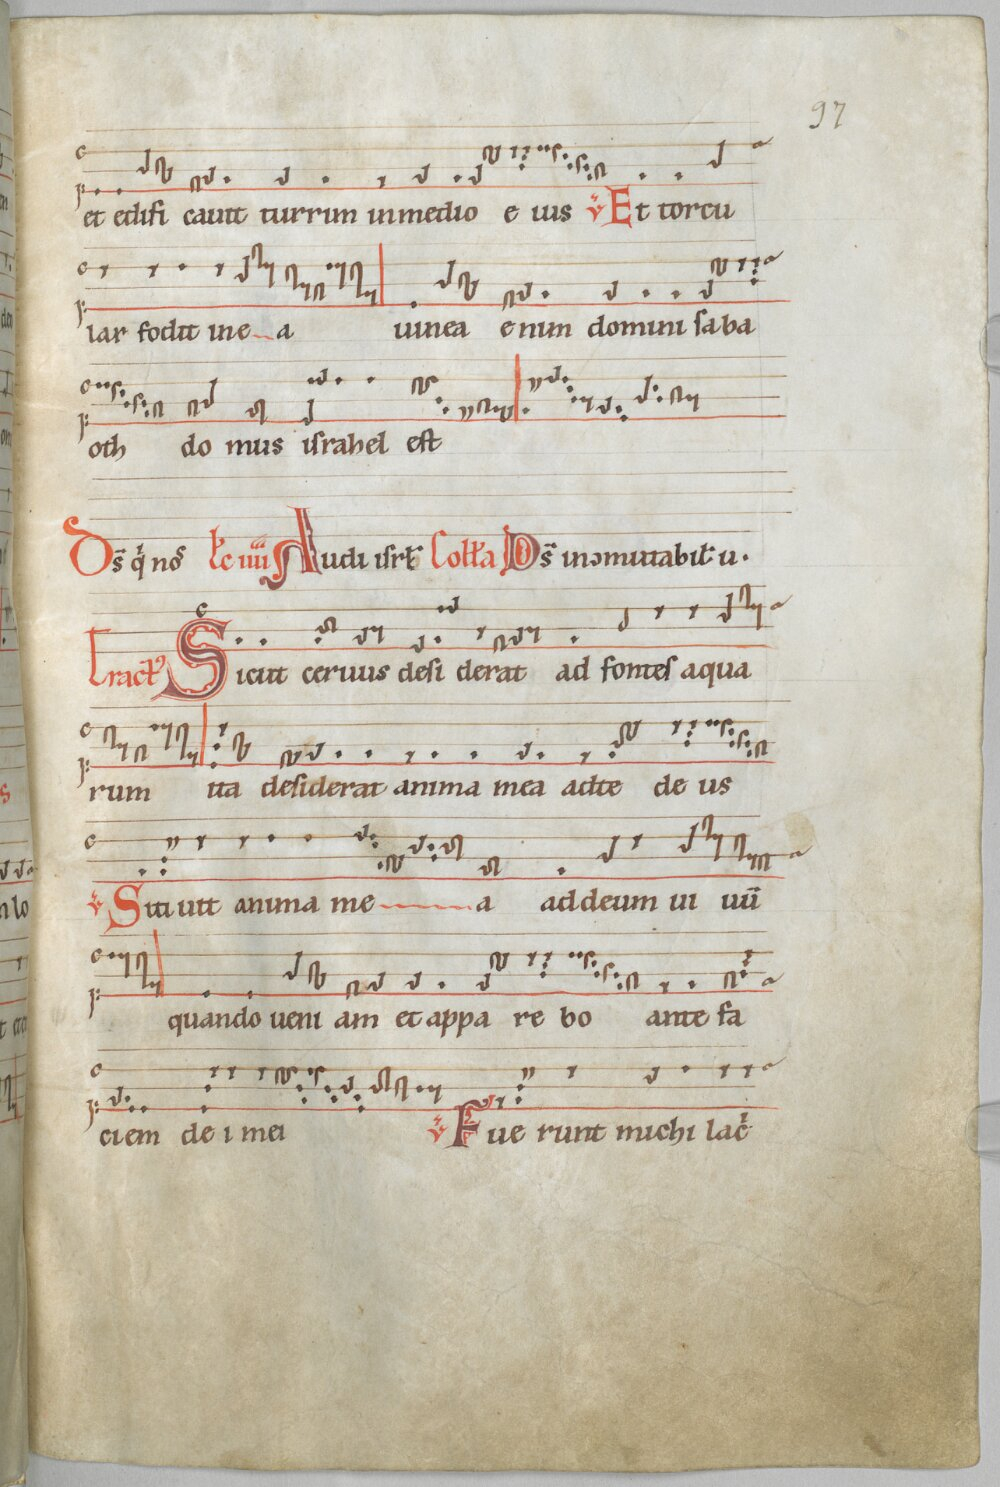 97
et edifi cauit turrim inmedio e ius ℣ Et torcu
lar fodit in e a uinea enim domini saba
oth do mus israhel est
D̄s q̇ nos Lc iiii Audi isrł Coll̃a D̄s incomutabil u.
Tract᷒ Sicut ceruus desi derat ad fontes aqua
rum ita desiderat anima mea adte de us
℣ Siti uit anima me a addeum ui uū
quando ueni am et appa re bo ante fa
ciem de i mei ℣ Fue runt michi lac̄